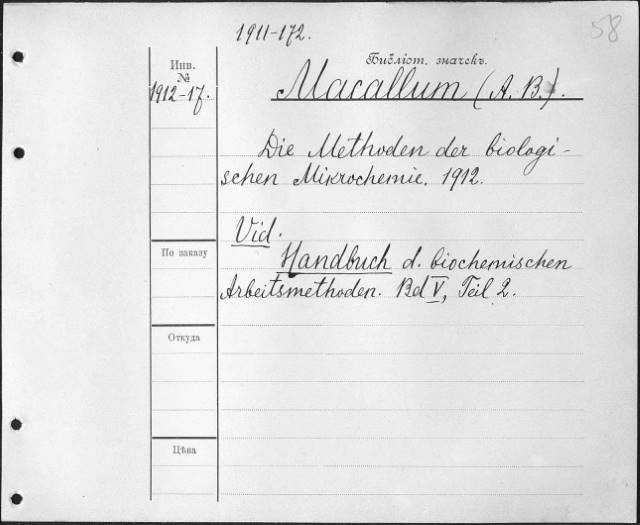 1911-172.
58
Инв.
№
1912-17.
Библіот. значекъ.
Macallum (A. B.).
Die Methoden der biologi-
schen Mikrochemie. 1912.
Vid.
По заказу
Handbuch d. biochemischen
Arbeitsmethoden. Bd V, Teil 2.
Откуда
Цѣна